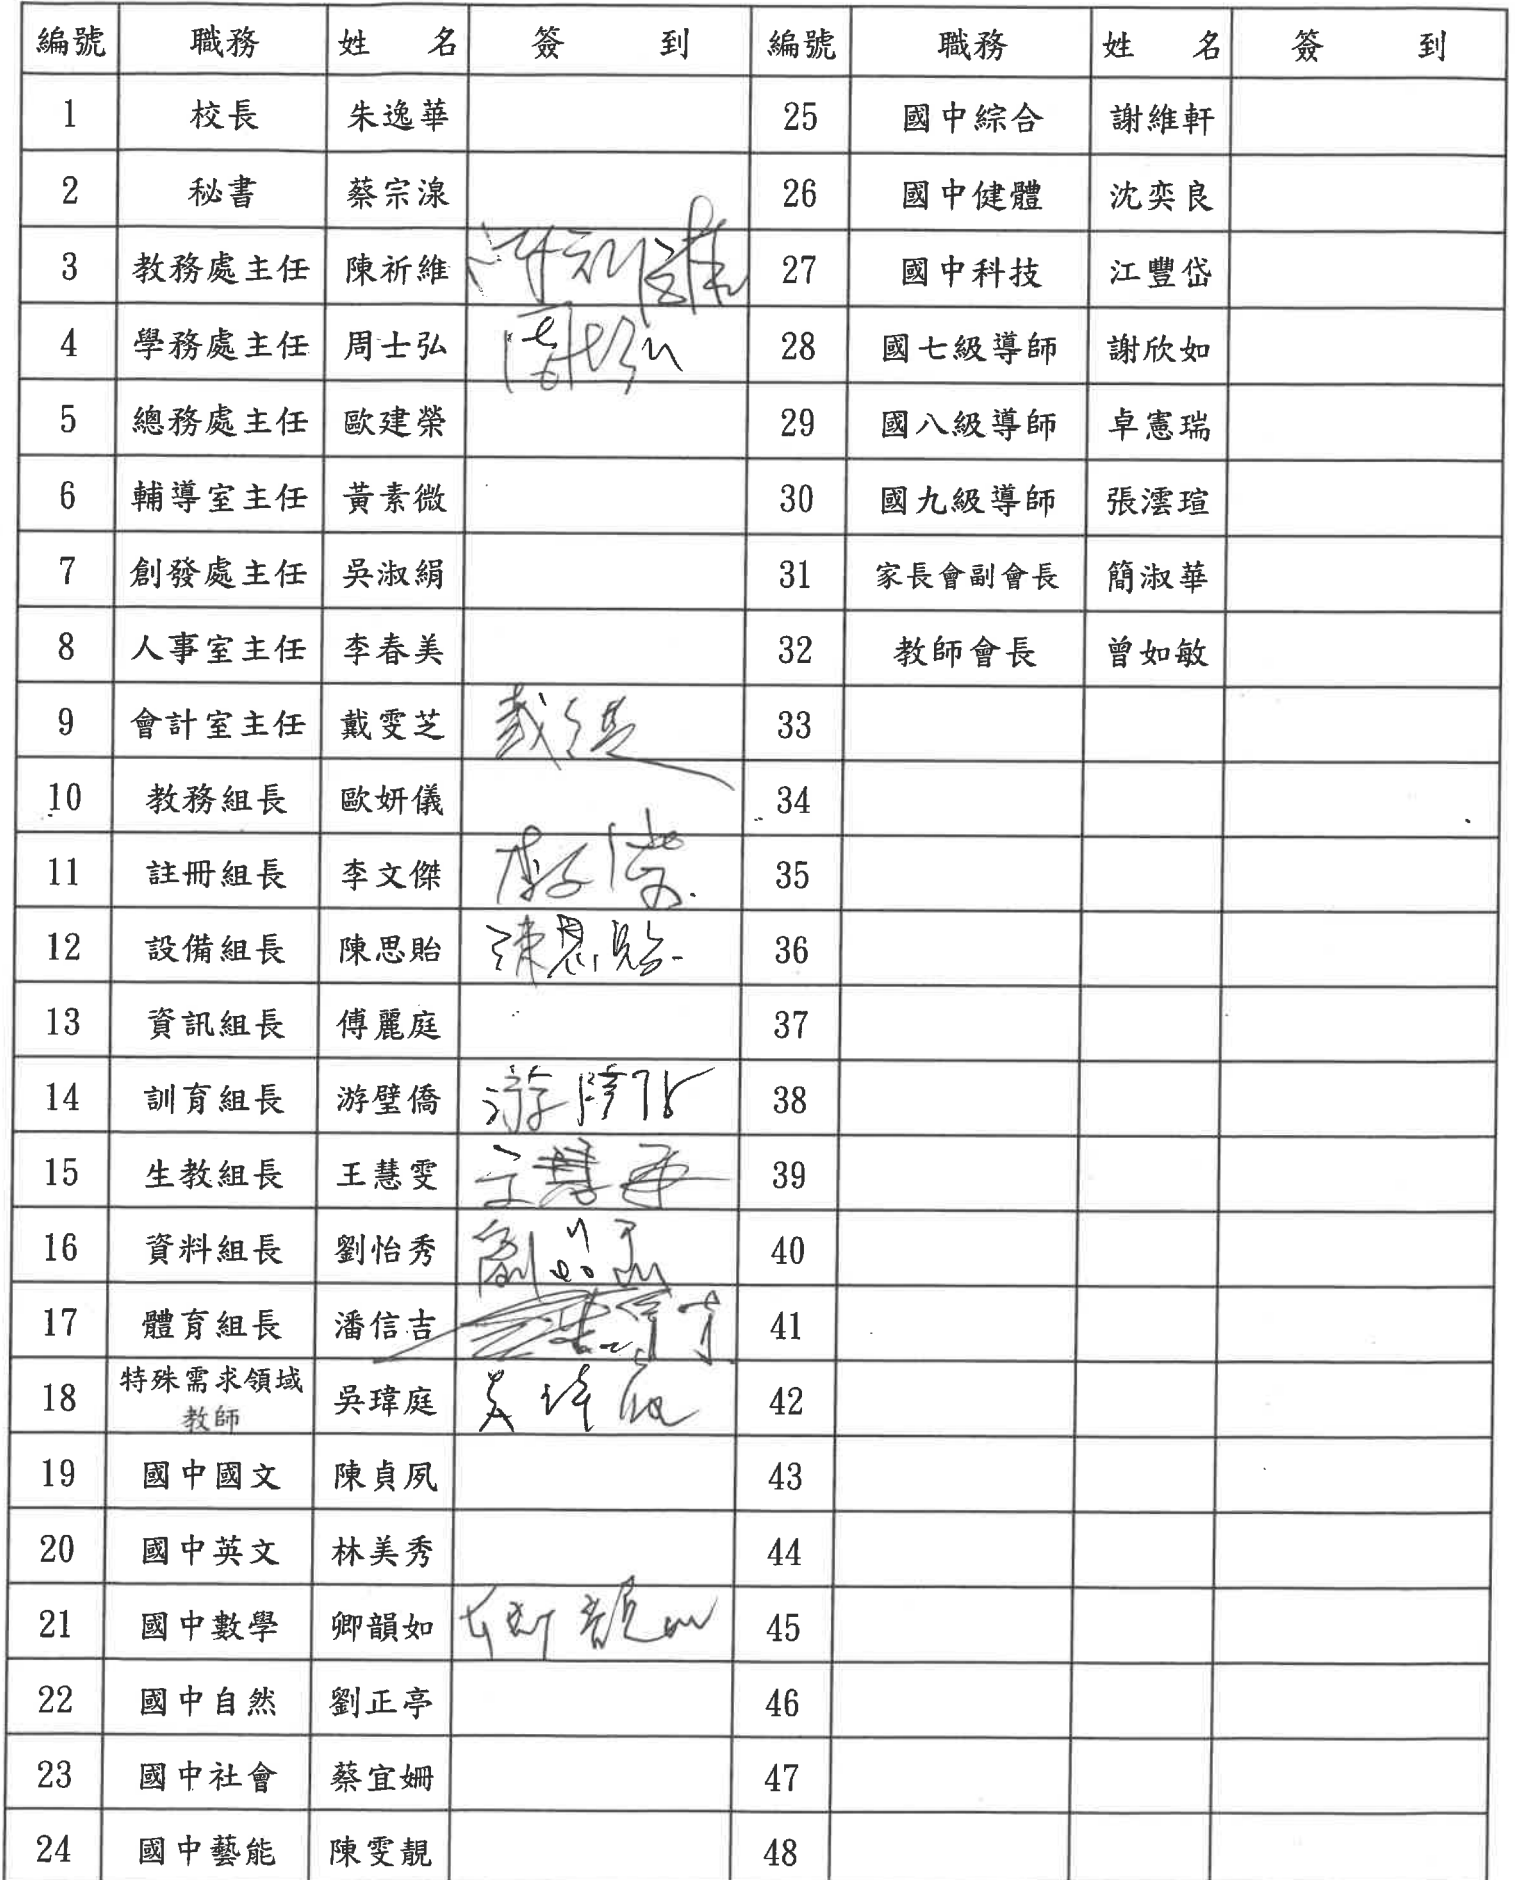 編號 職務 姓名 簽到 編號 職務 姓名 簽到
1 校長 朱逸華 25 國中綜合 謝維軒
2 秘書 蔡宗湶 26 國中健體 沈奕良
3 教務處主任 陳祈維 27 國中科技 江豐岱
4 學務處主任 周士弘 28 國七級導師 謝欣如
5 總務處主任 歐建榮 29 國八級導師 卓憲瑞
6 輔導室主任 黃素微 30 國九級導師 張澐瑄
7 創發處主任 吳淑絹 31 家長會副會長 簡淑華
8 人事室主任 李春美 32 教師會長 曾如敏
9 會計室主任 戴雯芝 33
10 教務組長 歐妍儀 34
11 註冊組長 李文傑 35
12 設備組長 陳思貽 陳思貽 36
13 資訊組長 傅麗庭 37
14 訓育組長 游壁僑 38
15 生教組長 王慧雯 王慧雯 39
16 資料組長 劉怡秀 40
17 體育組長 潘信吉 41
18 特殊需求領域
教師 吳瑋庭 吳瑋庭 42
19 國中國文 陳貞夙 43
20 國中英文 林美秀 44
21 國中數學 卿韻如 45
22 國中自然 劉正亭 46
23 國中社會 蔡宜姍 47
24 國中藝能 陳雯靚 48